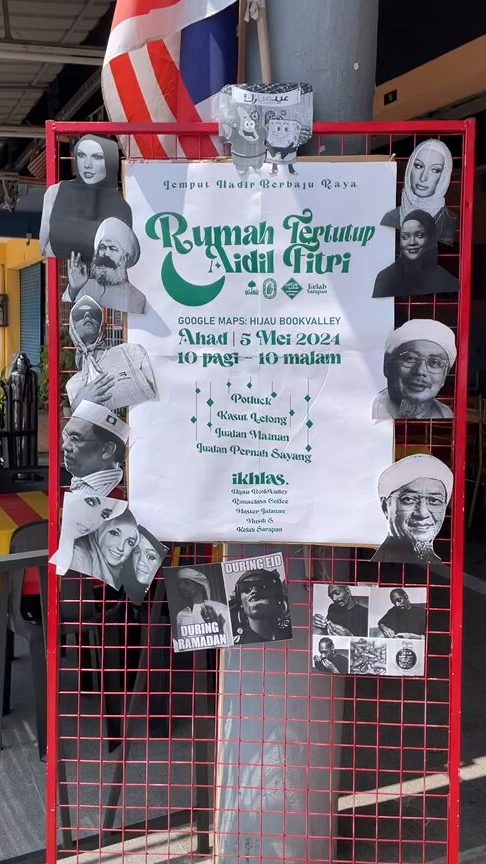 Jemput Hadir Berbaju Raya
Rumah Tertutup
Aidil Fitri
Kelab
Sarapan
GOOGLE MAPS: HIJAU BOOKVALLEY
Ahad | 5 Mei 2024
10 pagi – 10 malam
Potluck
Kasut Lelong
Jualan Mainan
Jualan Pernah Sayang
ikhlas.
Hijau BookValley
Master Jalanan
Kelab Sarapan
DURING EID
DURING
RAMADAN